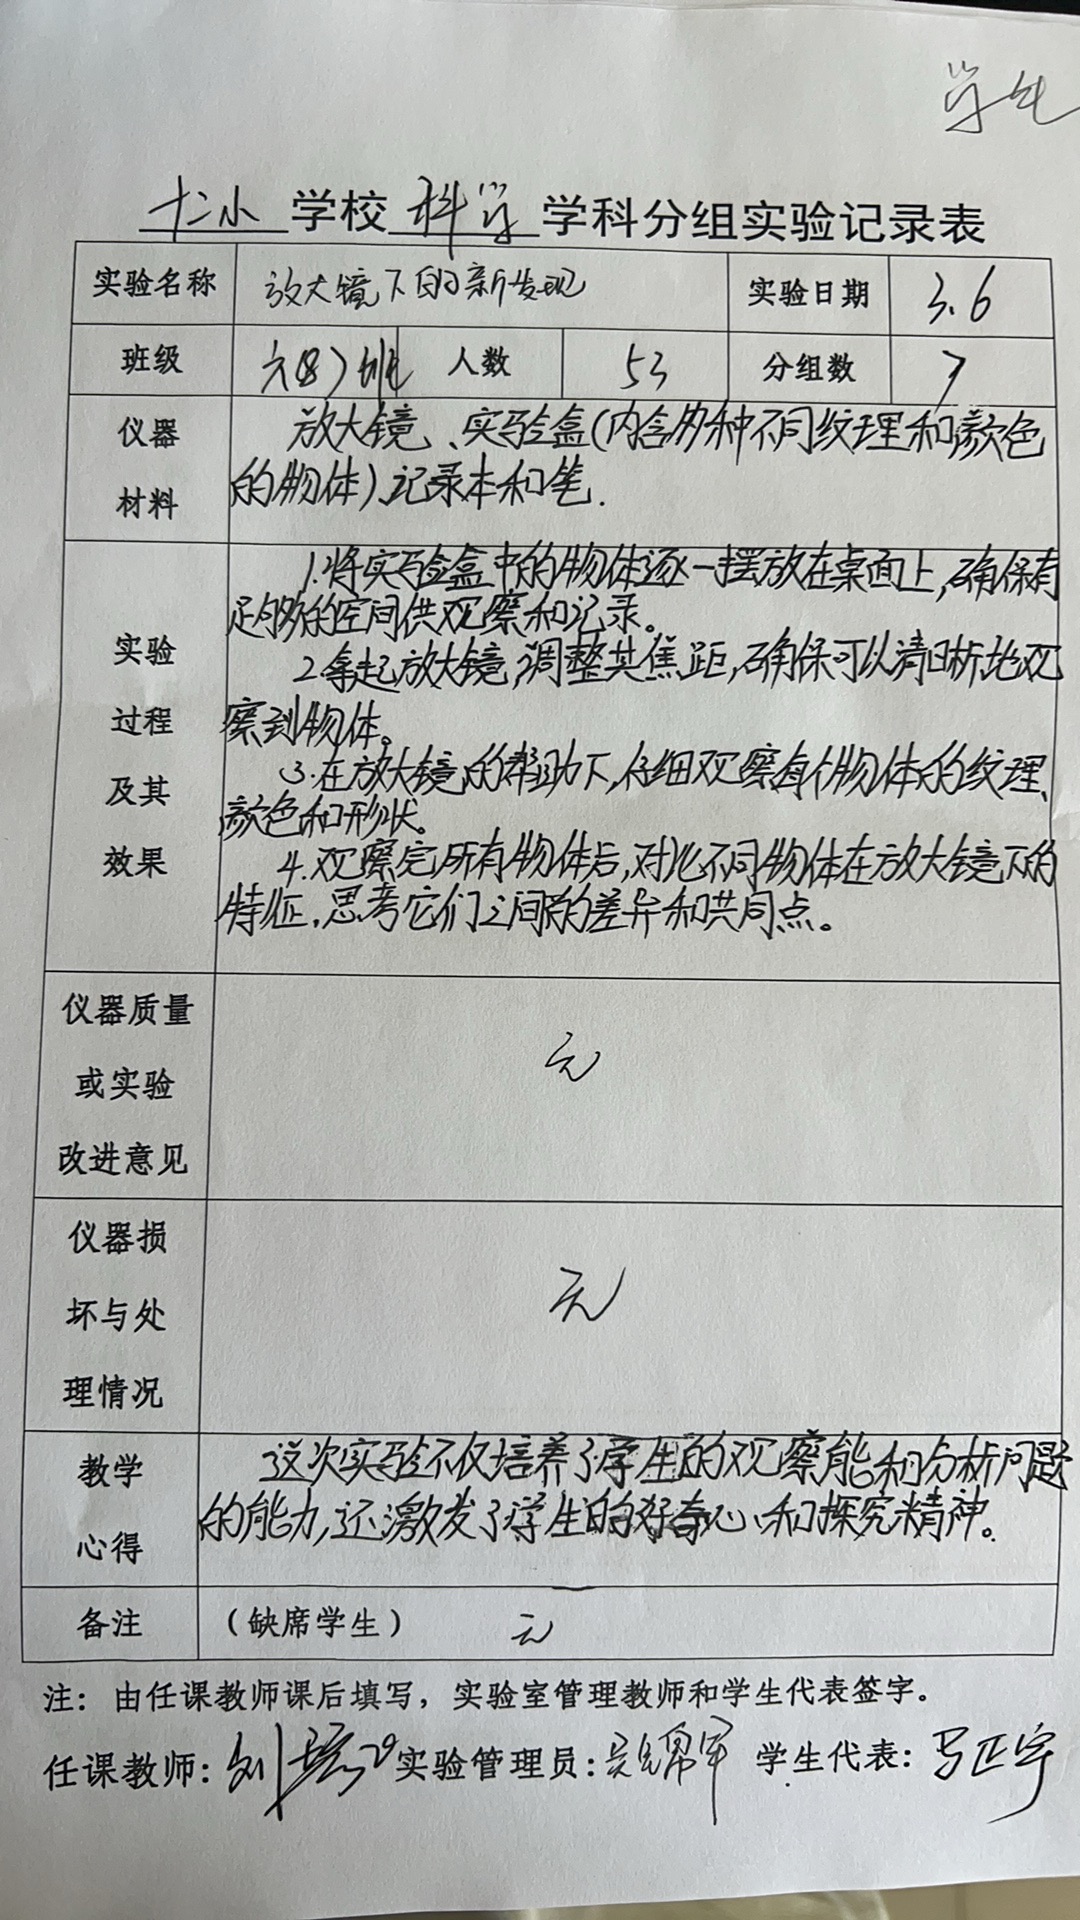 学生
十二小 学校 科学 学科分组实验记录表
实验名称 放大镜下的新发现 实验日期 3.6
班级 六(8)班 人数 53 分组数 7
仪器材料 放大镜、实验盒(内含多种不同纹理和颜色
的物体)、记录本和笔.
实验过程及其效果
1.将实验盒中的物体逐一摆放在桌面上,确保有
足够的空间供观察和记录。
2.拿起放大镜,调整其焦距,确保可以清晰地观
察到物体。
3.在放大镜的帮助下,仔细观察每个物体的纹理、
颜色和形状。
4.观察完所有物体后,对比不同物体在放大镜下的
特征,思考它们之间的差异和共同点。
仪器质量
或实验 无
改进意见
仪器损
坏与处 无
理情况
教学 这次实验不仅培养了学生的观察能和分析问题
心得 的能力,还激发了学生的好奇心和探究精神。
备注 (缺席学生) 无
注：由任课教师课后填写，实验室管理教师和学生代表签字。
任课教师: 刘 实验管理员: 学生代表: 马正宇